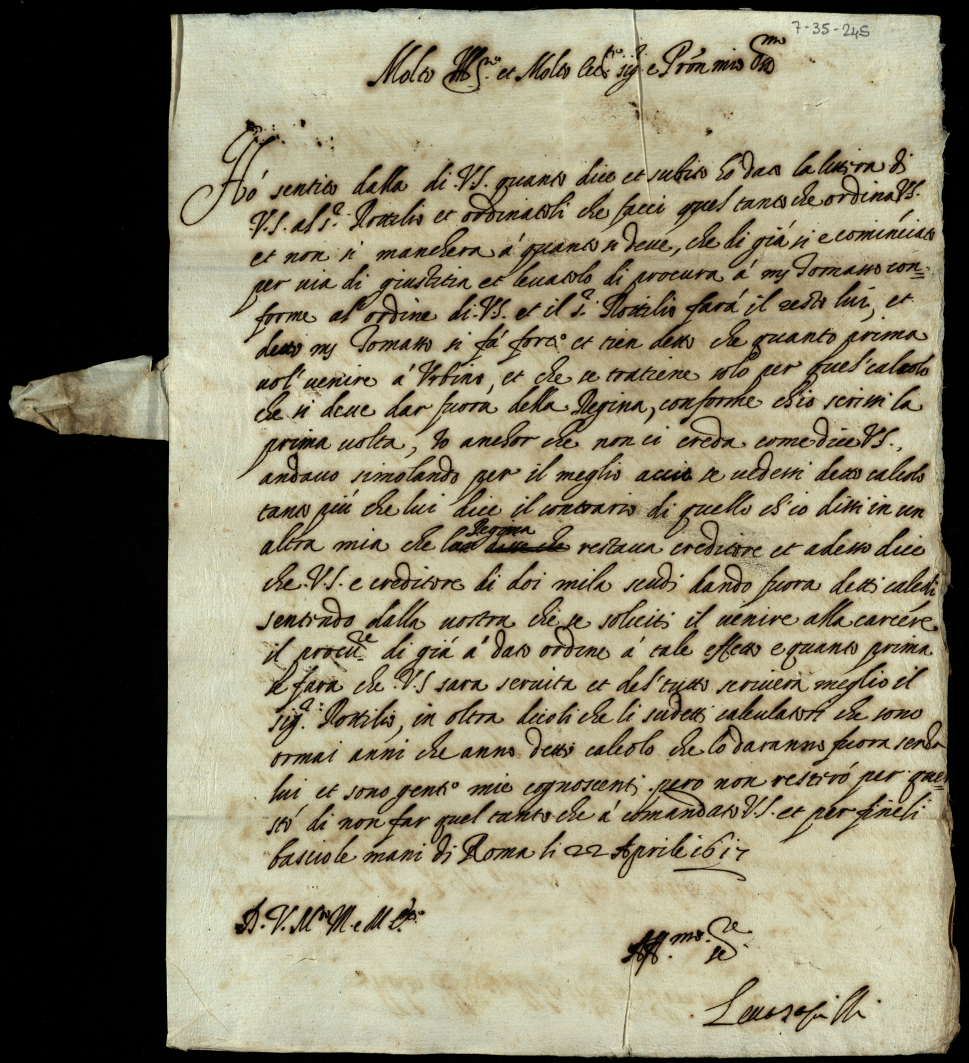 7-35-245
Molto et Molto sig.r e Prōn mio
Hó sentito dalla di .V.S. quanto dice et subito hó dato la littira di
.V.S. al s.r Rottilio et ordinatoli che facci quel tanto che ordina V.S.
et non si manchera á quanto si deve, che di giá si e cominciato
per via di giustitia et levatolo di procura á mʒ Tomasso con=
forme al ordine di .V.S. et il s.r Rottilio fará il resto lui, et
detto mʒ Tomasso si fá forte et tien detto che quanto prima
vol venire á Urbino, et che se tratiene solo per quel calcolo
che si deve dar fuora della Regina, conforme ch'io scrissi la
prima volta, Io anchor che non ci creda come dice V.S.,
andavo simolando per il meglio accio se vedessi detto calcolo
tanto piú che lui dice il contrario di quello ch'io dissi in un
altra mia che la Regina restava creditore et adesso dice
che .V.S. e creditore di doi mila scudi dando fuora detti calcoli
sentendo dalla vostra che se soliciti il venire alla carcére
il procu.re di giá á dato ordine á tale effetto e quanto prima
se fara che .V.S sara servita et del tutto scrivera meglio il
sig.r Rottilio, in oltra dicoli che li sudetti calculatori che sono
ormai anni che anno detto calcolo che lo daranno fuora senza
lui et sono gent.o mie cognoscenti pero non resteró per que=
sto di non far quel tanto che á comandato V.S. et per fine li
bascio le mani di Roma li 22 Aprile 1617
D. V. M. M. e M
Aff.mo se.re